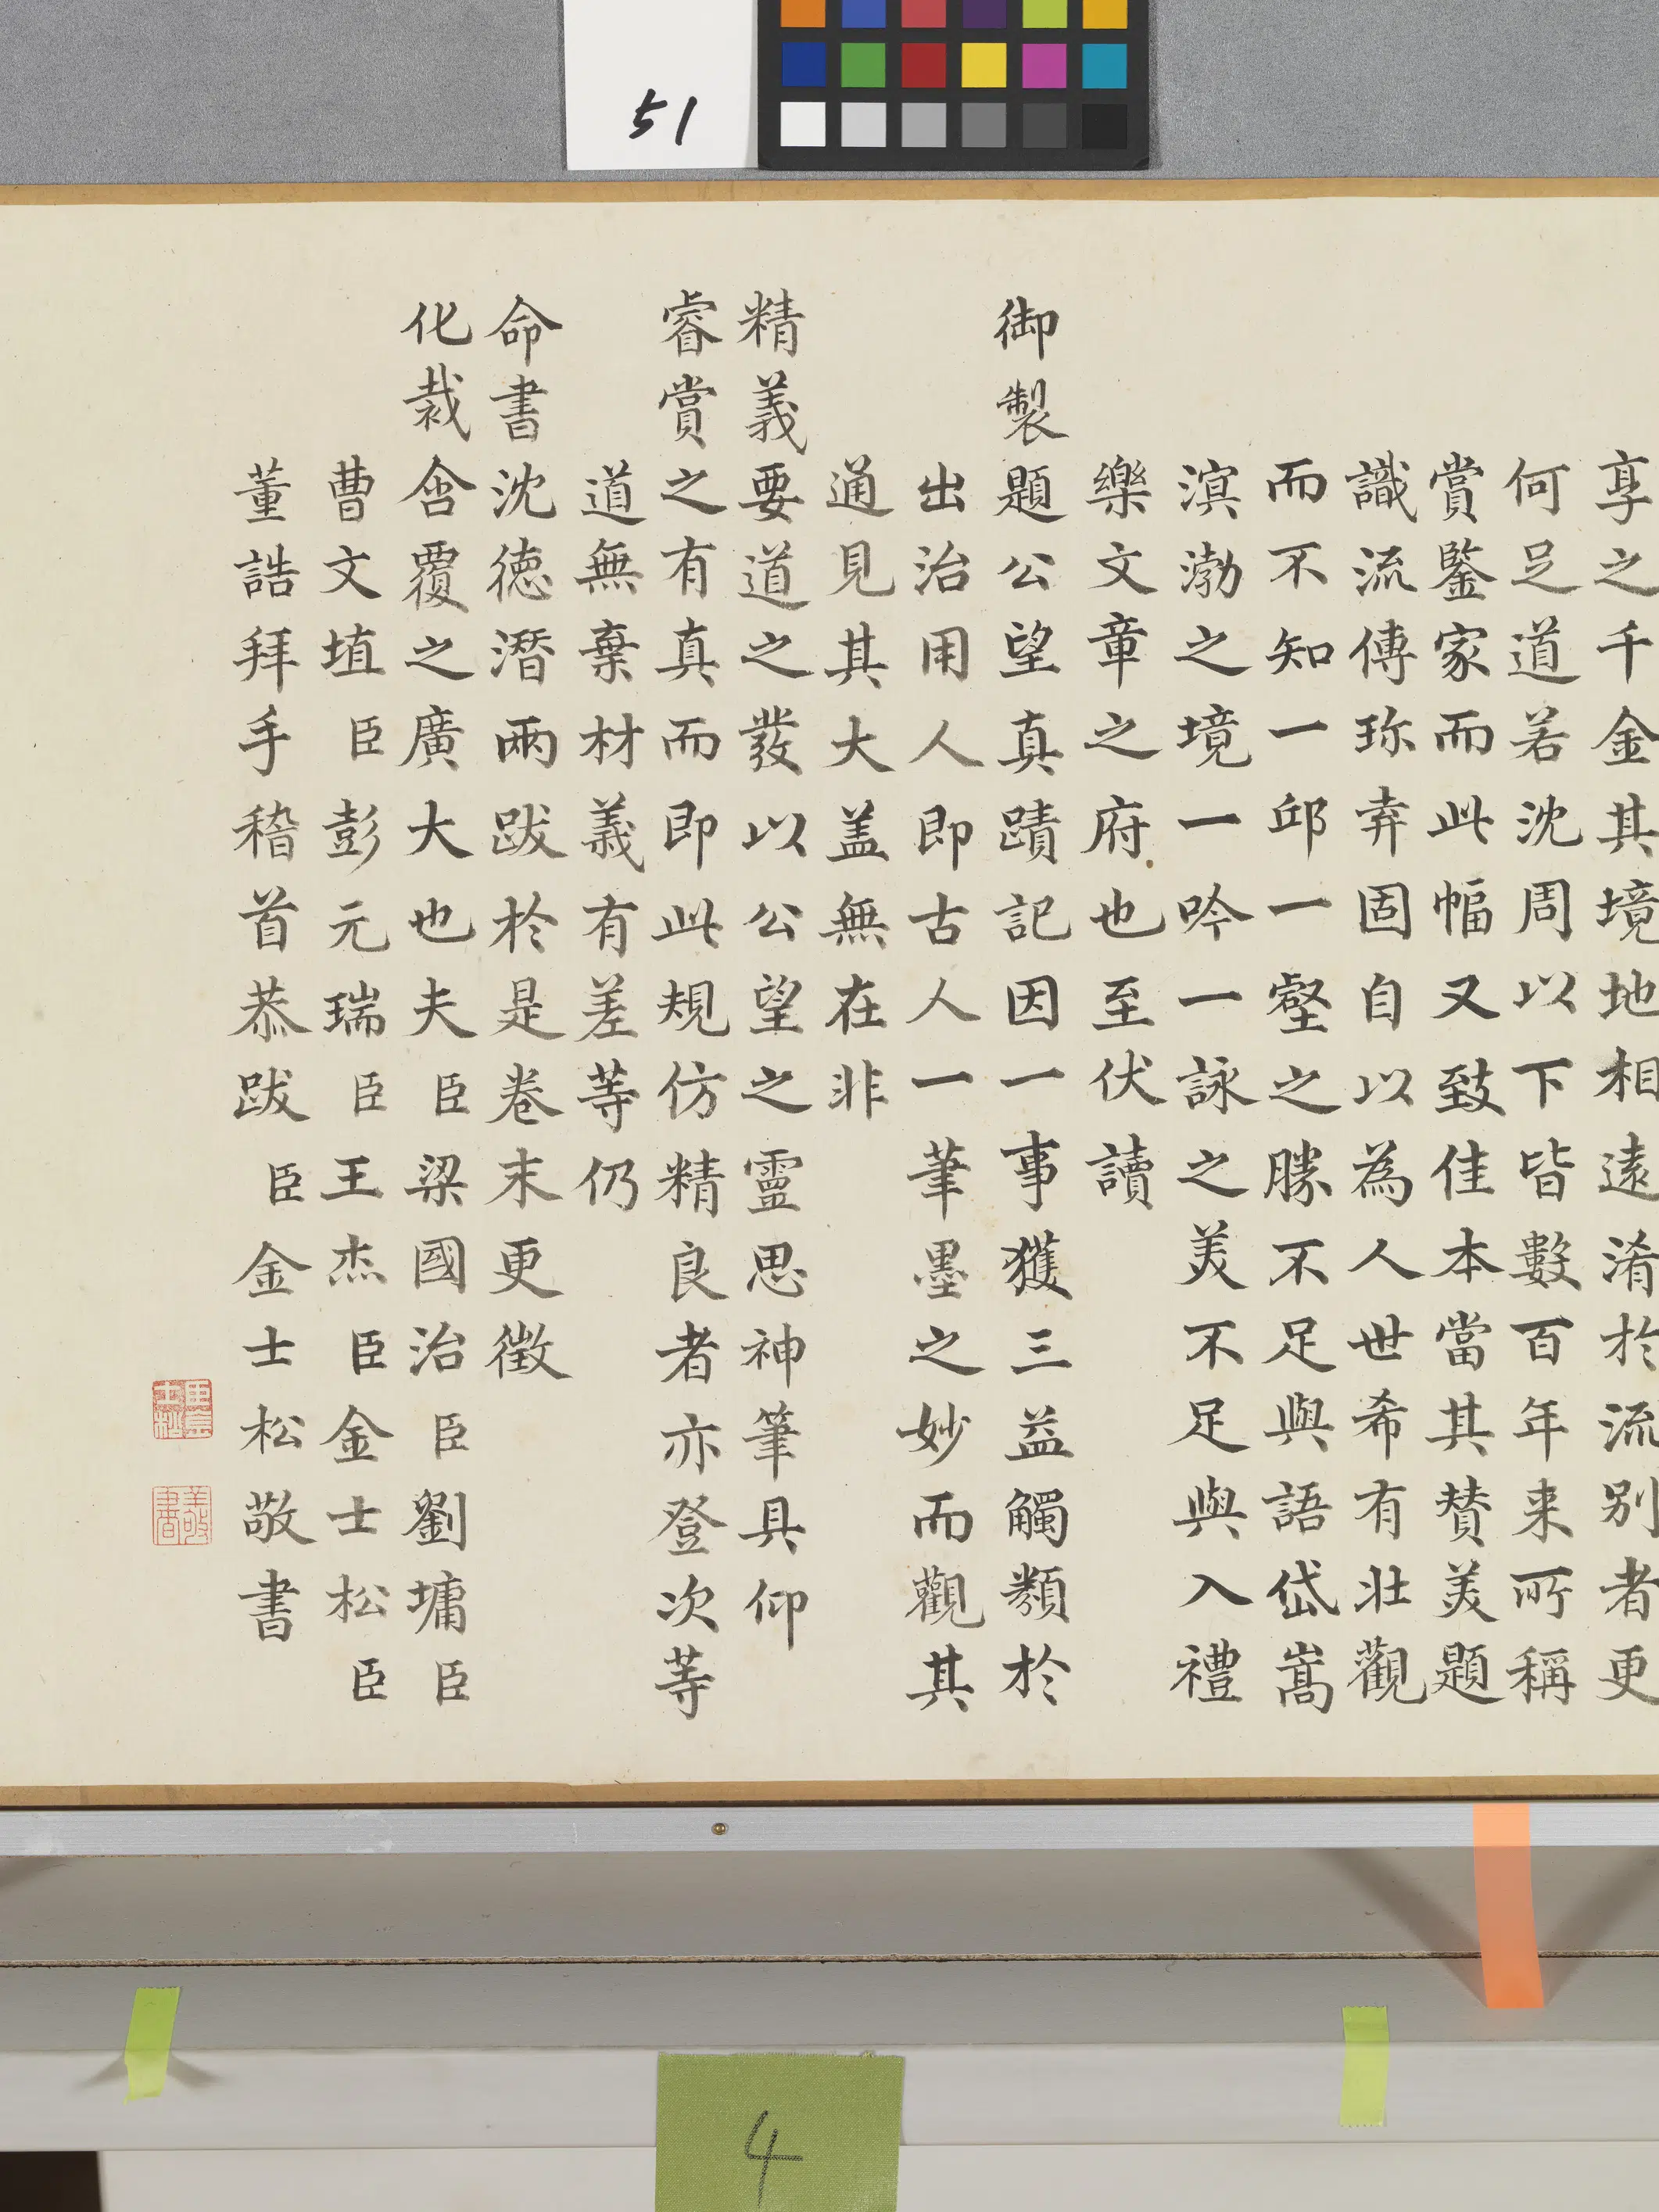 51
享之千金其境地相遠淆於流別者更
何足道若沈周以下皆數百年来所稱
賞鑒家而此幅又致佳本當其贊美題
識流傳珎弆固自以為人世希有壯觀
而不知一邱一壑之勝不足與語岱嵩
溟渤之境一吟一詠之美不足與入禮
樂文章之府也至伏讀
御製題公望真蹟記因一事獲三益觸類於
出治用人即古人一筆墨之妙而觀其
通見其大盖無在非
精義要道之發以公望之靈思神筆具仰
睿賞之有真而即此規仿精良者亦登次等
道無棄材義有差等仍
命書沈德潛兩跋於是卷末更徵
化裁含覆之廣大也夫臣梁國治臣劉墉臣
曹文埴臣彭元瑞臣王杰臣金士松臣
董誥拜手稽首恭跋臣金士松敬書
4